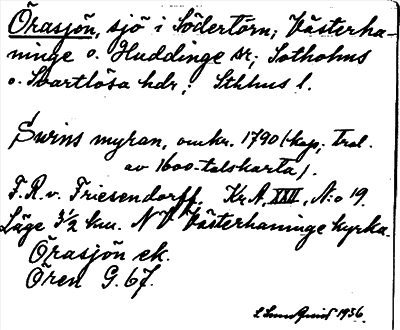 Örasjön, sjö i Södertörn; Västerha-
ninge o. Huddinge sr; Sotholms
o. Svartlösa hdr; Sthlms l.
Swins myran, omkr. 1790 (kop. trol.
av 1600-talskarta).
F.R. v. Friesendorff. Kr.A. XXII, N:o 19.
Läge 3 1/2 km. NV Västerhaninge kyrka.
Örasjön ek.
Ören G. 67.
1936.